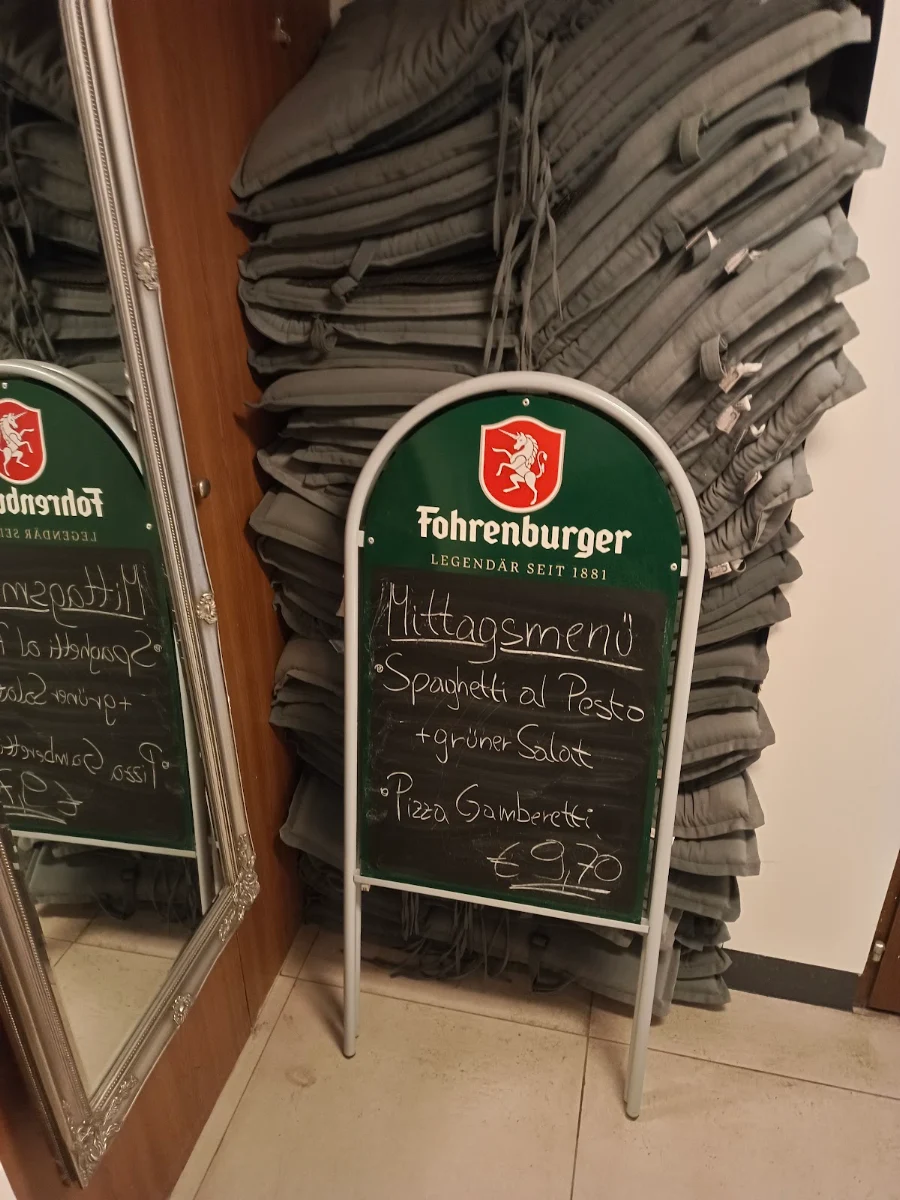 Fohrenburger
LEGENDÄR SEIT 1881
Mittagsmenü
Spaghetti al Pesto
+grüner Salat
Pizza Gamberetti
€ 9,70